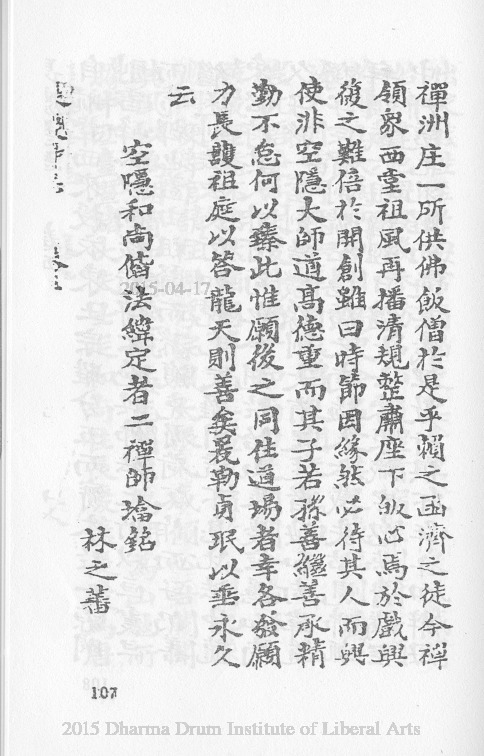 禪洲庄一所供佛飯僧於是乎賴之函濟之徒今禪
領眾西堂祖風再播清規整肅座下皈心焉於戲興
復之難倍於開創雖曰時節因緣然必待其人而興
使非空隱大師道高德重而其子若孫善繼善承精
勤不怠何以臻此惟願後之同住道場者幸各發願
力長護祖庭以答龍天則善矣爰勒貞珉以垂永久
云
空隱和尚偕法緯定者二禪師塔銘
林之蕃
卷三
107
2015-04-17
2015 Dharma Drum Institute of Liberal Arts